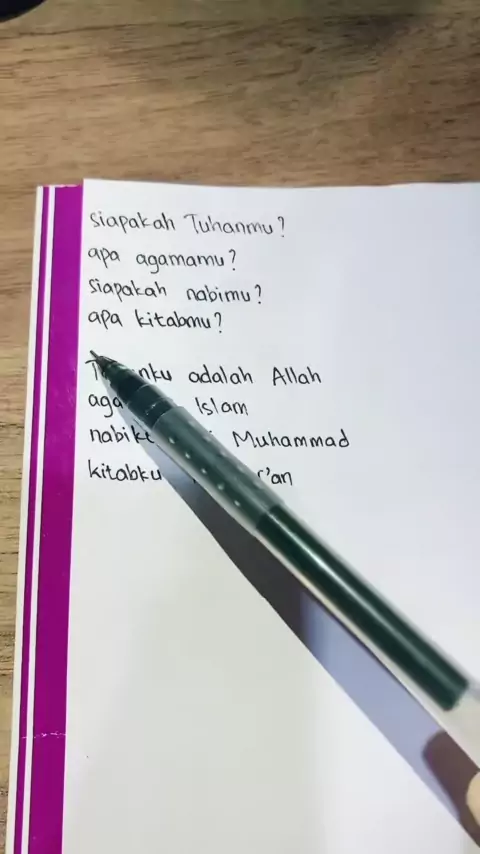 siapakah Tuhanmu?
apa agamamu?
siapakah nabimu?
apa kitabmu?
adalah Allah
Islam
Muhammad
kitabku